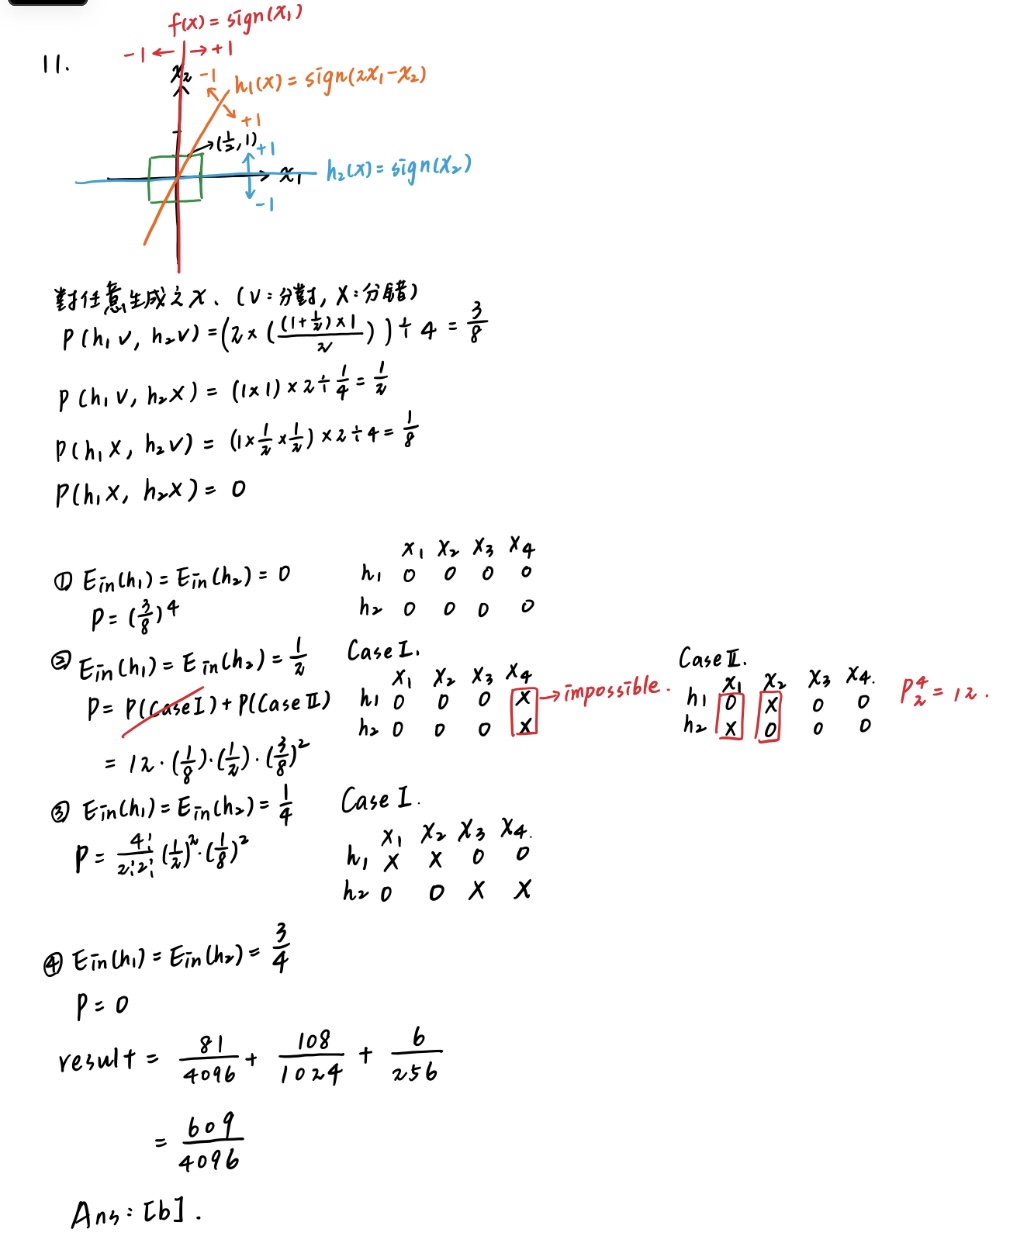 f(x) = sign(x₁)
11.
-1 ← → +1
x₂
-1
h₁(x) = sign(2x₁-x₂)
+1
(1/2, 1)
+1
x₁
h₂(x) = sign(x₂)
-1
對任意生成之x、(v:分對, X:分錯)
P(h₁v, h₂v) = (2×(((1+1/2)×1)/2))÷4 = 3/8
P(h₁v, h₂X) = (1×1)×2÷1/4 = 1/2
P(h₁X, h₂v) = (1×1/2×1/2)×2÷4 = 1/8
P(h₁X, h₂X) = 0
① Ein(h₁) = Ein(h₂) = 0
P = (3/8)⁴
x₁ x₂ x₃ x₄
h₁ 0 0 0 0
h₂ 0 0 0 0
② Ein(h₁) = Ein(h₂) = 1/2
P = P(Case I) + P(Case II)
= 12·(1/8)·(1/2)·(3/8)²
Case I.
x₁ x₂ x₃ x₄
h₁ 0 0 0 X → impossible.
h₂ 0 0 0 X
Case II.
x₁ x₂ x₃ x₄.
h₁ 0 X 0 0
h₂ X 0 0 0
P⁴₂ = 12.
③ Ein(h₁) = Ein(h₂) = 1/4
P = 4!/2!2! (1/2)²·(1/8)²
Case I.
x₁ x₂ x₃ x₄.
h₁ X X 0 0
h₂ 0 0 X X
④ Ein(h₁) = Ein(h₂) = 3/4
P = 0
result = 81/4096 + 108/1024 + 6/256
= 609/4096
Ans: [b].